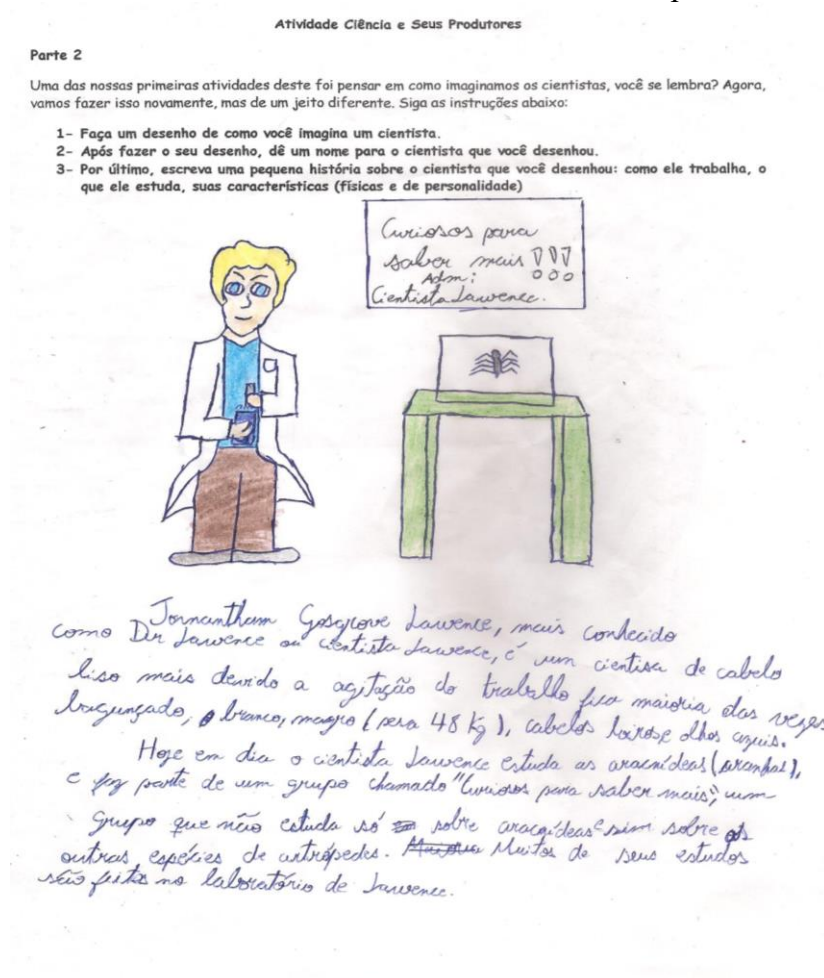 Atividade Ciência e Seus Produtores
Parte 2
Uma das nossas primeiras atividades deste foi pensar em como imaginamos os cientistas, você se lembra? Agora,
vamos fazer isso novamente, mas de um jeito diferente. Siga as instruções abaixo:
1- Faça um desenho de como você imagina um cientista.
2- Após fazer o seu desenho, dê um nome para o cientista que você desenhou.
3- Por último, escreva uma pequena história sobre o cientista que você desenhou: como ele trabalha, o
que ele estuda, suas características (físicas e de personalidade)
Curiosos para
saber mais !!!
Adm:
Cientista Lawence.
Jornantham Gosgrove Lawence, mais conhecido
como Dir Lawence ou cientista Lawence, é um cientisa de cabelo
liso mais devido a agitação do trabalho fica maioria das vezes
bagunçado, branco, magro (pesa 48 Kg), cabelos loiros e olhos azuis.
Hoje em dia o cientista Lawence estuda as aracnídeas (aranhas),
e faz parte de um grupo chamado "Curiosos para saber mais", um
grupo que não estuda só sobre aracnídeas e sim sobre as
outras espécies de artrópedes. Muitos de seus estudos
são feitos no laboratório de Lawence.